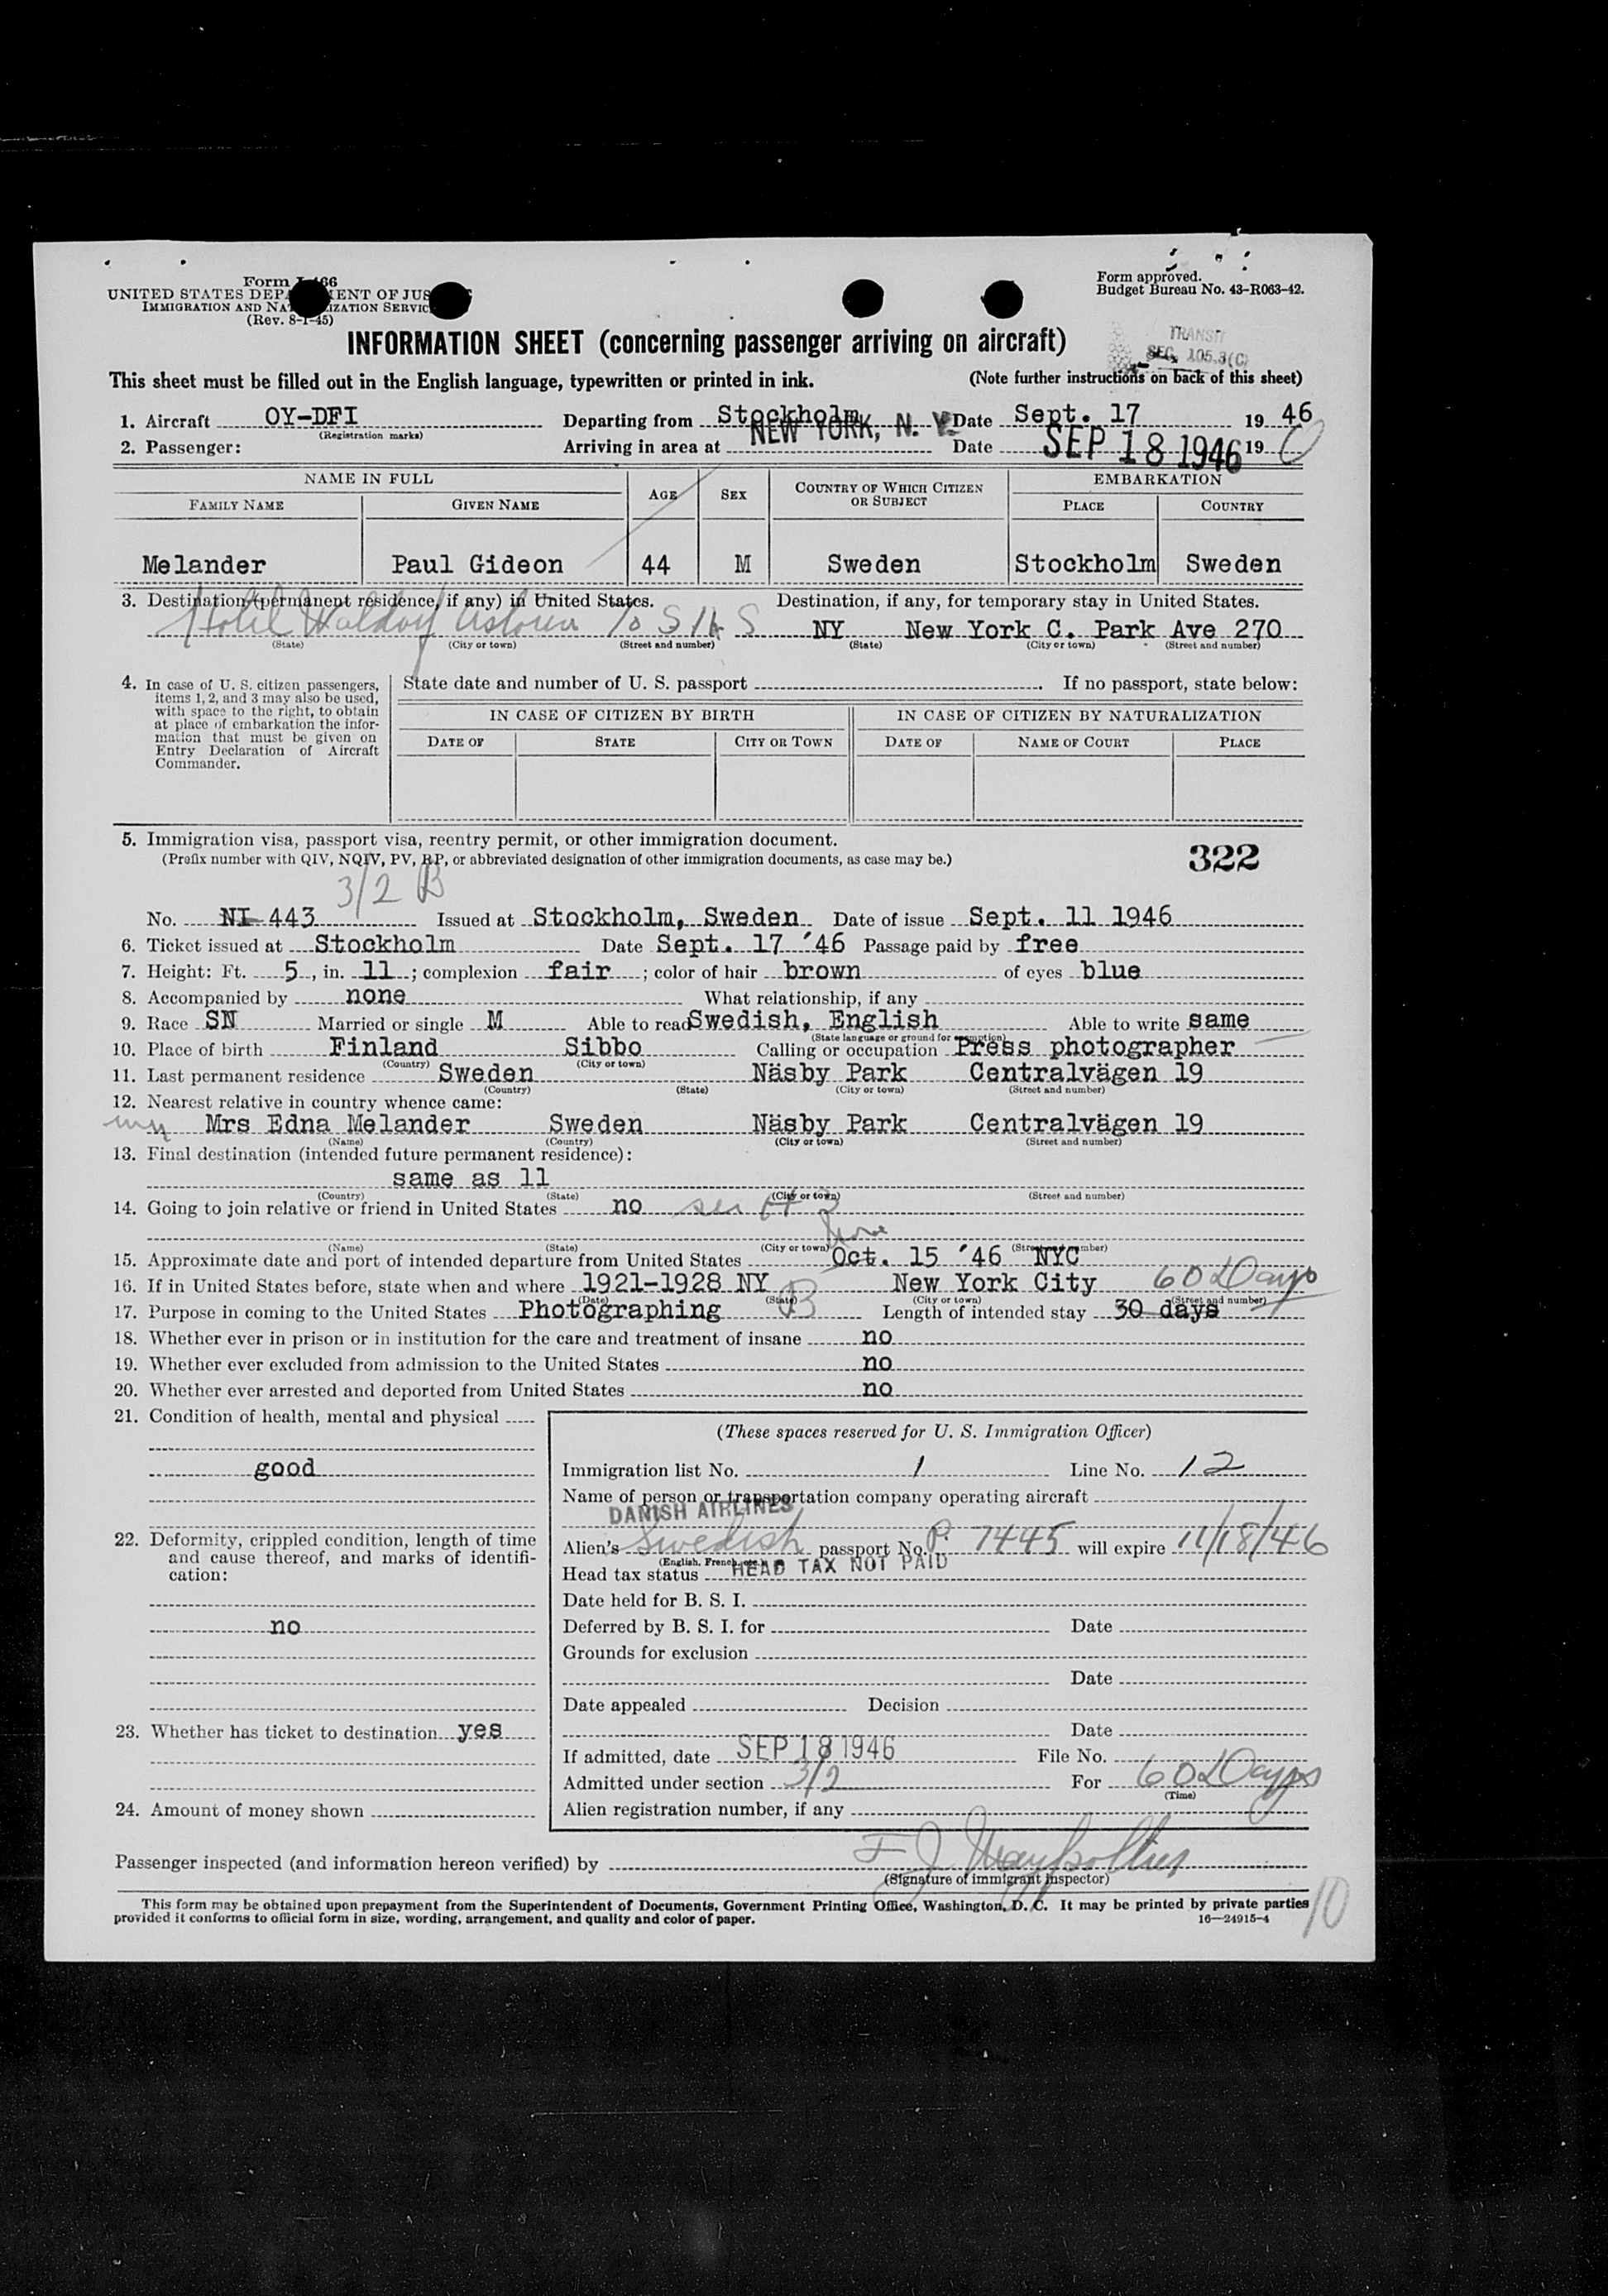 Form I-466
UNITED STATES DEPARTMENT OF JUSTICE
IMMIGRATION AND NATURALIZATION SERVICE
(Rev. 8-1-45)
Form approved.
Budget Bureau No. 43-R063-42.
INFORMATION SHEET (concerning passenger arriving on aircraft)
TRANSIT
SEC. 105.3(C)
This sheet must be filled out in the English language, typewritten or printed in ink. (Note further instructions on back of this sheet)
1. Aircraft OY-DFI Departing from Stockholm Date Sept. 17 19 46
(Registration marks)
2. Passenger: Arriving in area at NEW YORK, N. Y. Date SEP 18 1946 19
NAME IN FULL AGE SEX COUNTRY OF WHICH CITIZEN OR SUBJECT EMBARKATION
FAMILY NAME GIVEN NAME PLACE COUNTRY
Melander Paul Gideon 44 M Sweden Stockholm Sweden
3. Destination (permanent residence, if any) in United States. Destination, if any, for temporary stay in United States.
Hotel Waldorf Astoria NY New York C. Park Ave 270
(State) (City or town) (Street and number) (State) (City or town) (Street and number)
4. In case of U. S. citizen passengers, items 1, 2, and 3 may also be used, with space to the right, to obtain at place of embarkation the information that must be given on Entry Declaration of Aircraft Commander.
State date and number of U. S. passport . If no passport, state below:
IN CASE OF CITIZEN BY BIRTH IN CASE OF CITIZEN BY NATURALIZATION
DATE OF STATE CITY OR TOWN DATE OF NAME OF COURT PLACE
5. Immigration visa, passport visa, reentry permit, or other immigration document.
(Prefix number with QIV, NQIV, PV, RP, or abbreviated designation of other immigration documents, as case may be.) 322
3/2 B
No. NI 443 Issued at Stockholm, Sweden Date of issue Sept. 11 1946
6. Ticket issued at Stockholm Date Sept. 17 '46 Passage paid by free
7. Height: Ft. 5, in. 11; complexion fair; color of hair brown of eyes blue
8. Accompanied by none What relationship, if any
9. Race SN Married or single M Able to read Swedish, English Able to write same
(State language or ground for exemption)
10. Place of birth Finland Sibbo Calling or occupation Press photographer
(Country) (City or town)
11. Last permanent residence Sweden Näsby Park Centralvägen 19
(Country) (State) (City or town) (Street and number)
12. Nearest relative in country whence came:
Mrs Edna Melander Sweden Näsby Park Centralvägen 19
(Name) (Country) (City or town) (Street and number)
13. Final destination (intended future permanent residence):
same as 11
(Country) (State) (City or town) (Street and number)
14. Going to join relative or friend in United States no
(Name) (State) (City or town) (Street and number)
15. Approximate date and port of intended departure from United States Oct. 15 '46 NYC
16. If in United States before, state when and where 1921-1928 NY New York City 60 Days
(Date) (State) (City or town) (Street and number)
17. Purpose in coming to the United States Photographing B Length of intended stay 30 days
18. Whether ever in prison or in institution for the care and treatment of insane no
19. Whether ever excluded from admission to the United States no
20. Whether ever arrested and deported from United States no
21. Condition of health, mental and physical
good
22. Deformity, crippled condition, length of time and cause thereof, and marks of identification:
no
23. Whether has ticket to destination yes
24. Amount of money shown
(These spaces reserved for U. S. Immigration Officer)
Immigration list No. 1 Line No. 12
Name of person or transportation company operating aircraft
DANISH AIRLINES
Alien's Swedish passport No. P. 7445 will expire 11/18/46
(English, French, etc.)
Head tax status HEAD TAX NOT PAID
Date held for B. S. I.
Deferred by B. S. I. for Date
Grounds for exclusion
Date
Date appealed Decision
Date
If admitted, date SEP 18 1946 File No.
Admitted under section 3/2 For 60 Days
(Time)
Alien registration number, if any
Passenger inspected (and information hereon verified) by
(Signature of immigrant inspector)
This form may be obtained upon prepayment from the Superintendent of Documents, Government Printing Office, Washington, D. C. It may be printed by private parties
provided it conforms to official form in size, wording, arrangement, and quality and color of paper. 16—24915-4
10